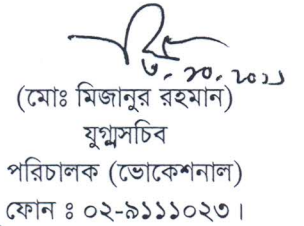 ৩.১০.২০১১
(মোঃ মিজানুর রহমান)
যুগ্মসচিব
পরিচালক (ভোকেশনাল)
ফোন ঃ ০২-৯১১১০২৩।